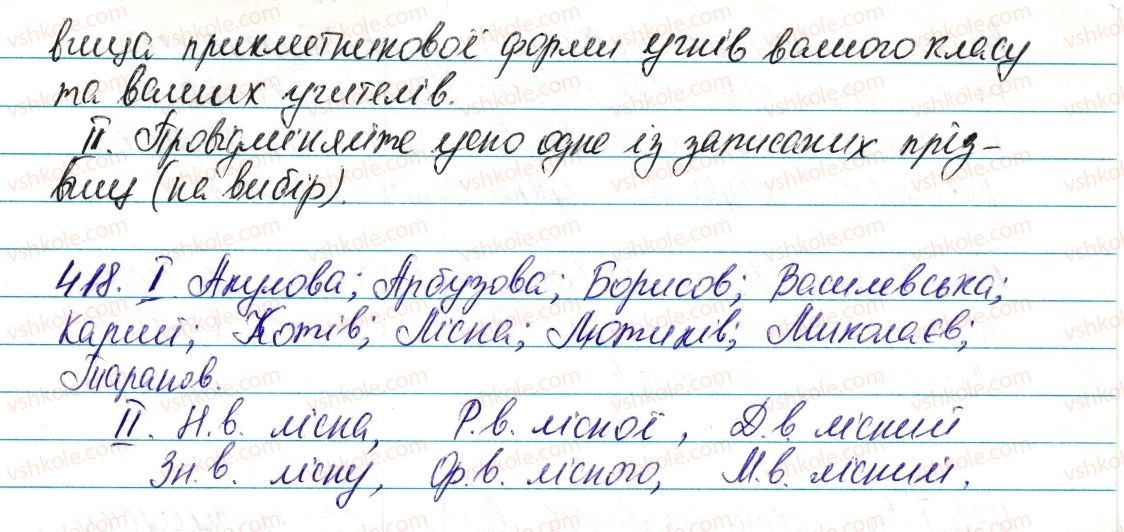 вища прикметникової форми учнів вашого класу
та ваших учителів.
II. Провідміняйте усно одне із записаних пріз-
вищ (на вибір).
418. I. Акулова; Арбузова; Борисов; Василевська;
Карий; Котів; Лісна; Лютиків; Миколаєв;
Таранов.
II. Н.в. лісна, Р.в. лісної, Д.в. лісний
Зн.в. лісну, Ор.в. лісного, М.в. лісний.